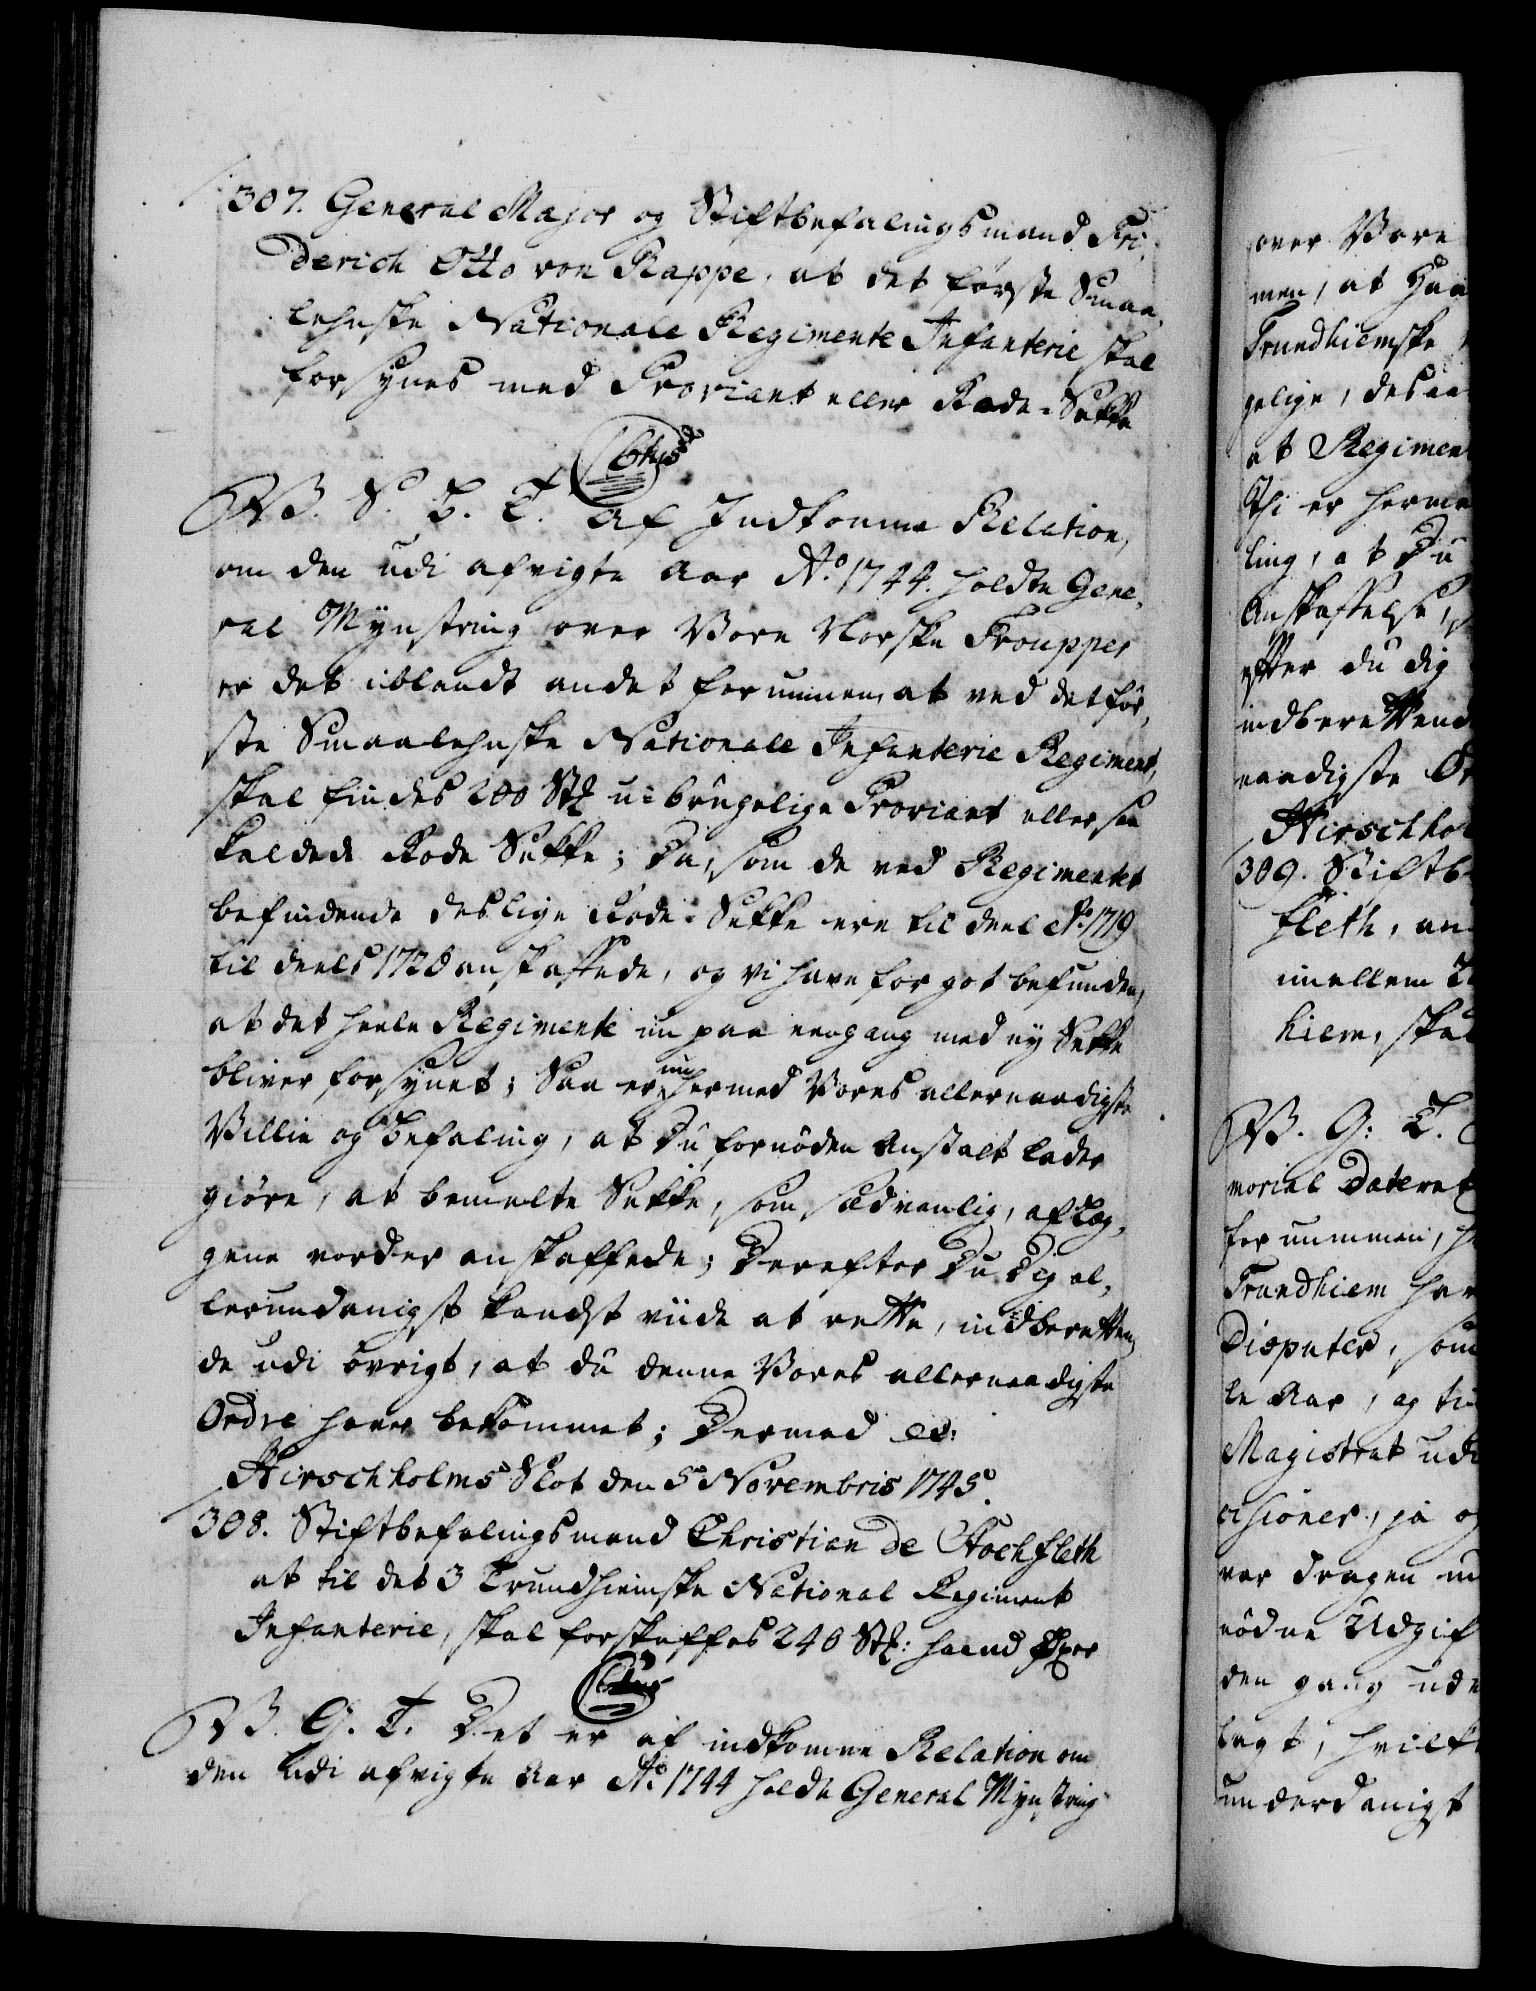 307. General Major og Stiftbefalingsmand Fri-
derich Otto von Rappe, at det første Smaa-
lehnske Nationale Regimente Infanterie skal
forsÿnes med Proviant eller Rode-Sekke
W. S. B. T. Af Indkomne Relation,
om den udi afvigte Aar Aº 1744. holdte Gene-
ral Mÿnstring over Vore Norske Troupper
er det iblandt andet fornummen, at ved det før-
ste Smaalehnske Nationale Infanterie Regiment,
skal findes 200 Stk u-brugelige Proviant eller saa
kaldede Rode Sekke; Da, som de ved Regimentet
befindende deslige Rode-Sekke ere til deel Aº 1719
til deels 1720 anskaffede, og vi have for got befunden,
at det heele Regimente nu paa eengang med nÿ Sekke
bliver forsÿnet; Saa er nu hermed Vores allernaadigste
Villie og Befaling, at Du fornøden Anstalt lader
giøre, at bemelte Sekke, som sædvanlig, af Læg-
gene vorder anskaffede; Derefter Du Dig al-
lerunderdanigst kandst viide at rette, indberetten-
de udi øvrigt, at du denne Vores allernaadigste
Ordre haver bekommet; Dermed etc:
Hirschholms Slot den 5 Novembris 1745.
308. Stiftbefalingsmand Christian de Stockfleth
at til det 3 Trundhiemske National Regiment
Infanterie, skal forskaffes 240 Stk: haand Øxer
W. G. T. Det er af indkomne Relation om
den udi afvigte Aar Aº 1744 holdte General Mÿnstring
over Vore
men, at
Trundhiemske
gelige, desaa
at Regimen
Thi er herme
ling, at Du
Anskaffelse,
efter du dig
indberettend
naadigste
Hirschhol
309. Stiftb
fleth, an
imellem
hiem, skal
W. G: T.
morial Dateret
fornummen,
Trundhiem har
Disputer, som
le Aar, og til
Magistrat udi
ja og
var dragen
nødne Udgif
den gang ude
lagt, hvilk
underdanigst